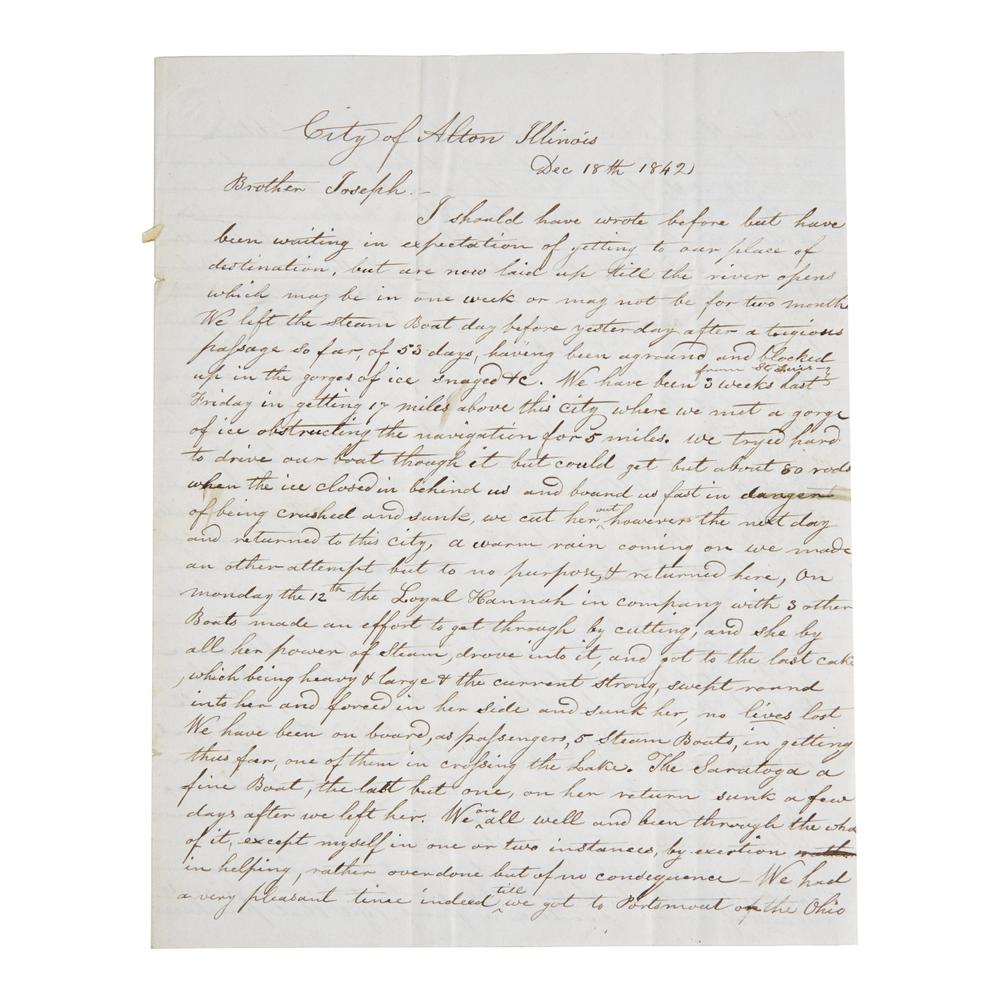 City of Alton Illinois
Dec 18th 1842
Brother Joseph.-
I should have wrote before but have
been waiting in expectation of getting to our place of
destination, but are now laid up till the river opens
which may be in one week or may not be for two month
We left the Steam Boat day before yesterday after a tegious
passage so far, of 53 days, having been aground and blocked
from St Luis
up in the gorges of ice snaged &c. We have been 3 weeks last
Friday in getting 17 miles above this city, where we met a gorge
of ice obstructing the navigation for 5 miles. we tryed hard
to drive our boat though it but could get but about 80 rods
when the ice closed in behind us and bound us fast in danger
of being crushed and sunk, we cut her out, however the next day
and returned to this city, a warm rain coming on we made
an other attempt but to no purpose, & returned here, On
monday the 12th the Loyal Hannah in company with 3 other
Boats made an effort to get through by cutting, and she by
all her power of Steam, drove into it, and got to the last cake
, which being heavy & large & the current strong, swept round
into her and forced in her side and sunk her, no lives lost
We have been on board, as passengers, 5 Steam Boats, in getting
thus far, one of them in crossing the Lake. The Saratoga a
fine Boat, the last but one, on her return sunk a few
days after we left her. We are all well and been through the who
of it, except myself in one or two instances, by exertion rather
in helping, rather overdone but of no consequence - We had
a very pleasant time indeed till we got to Portsmout on the Ohio